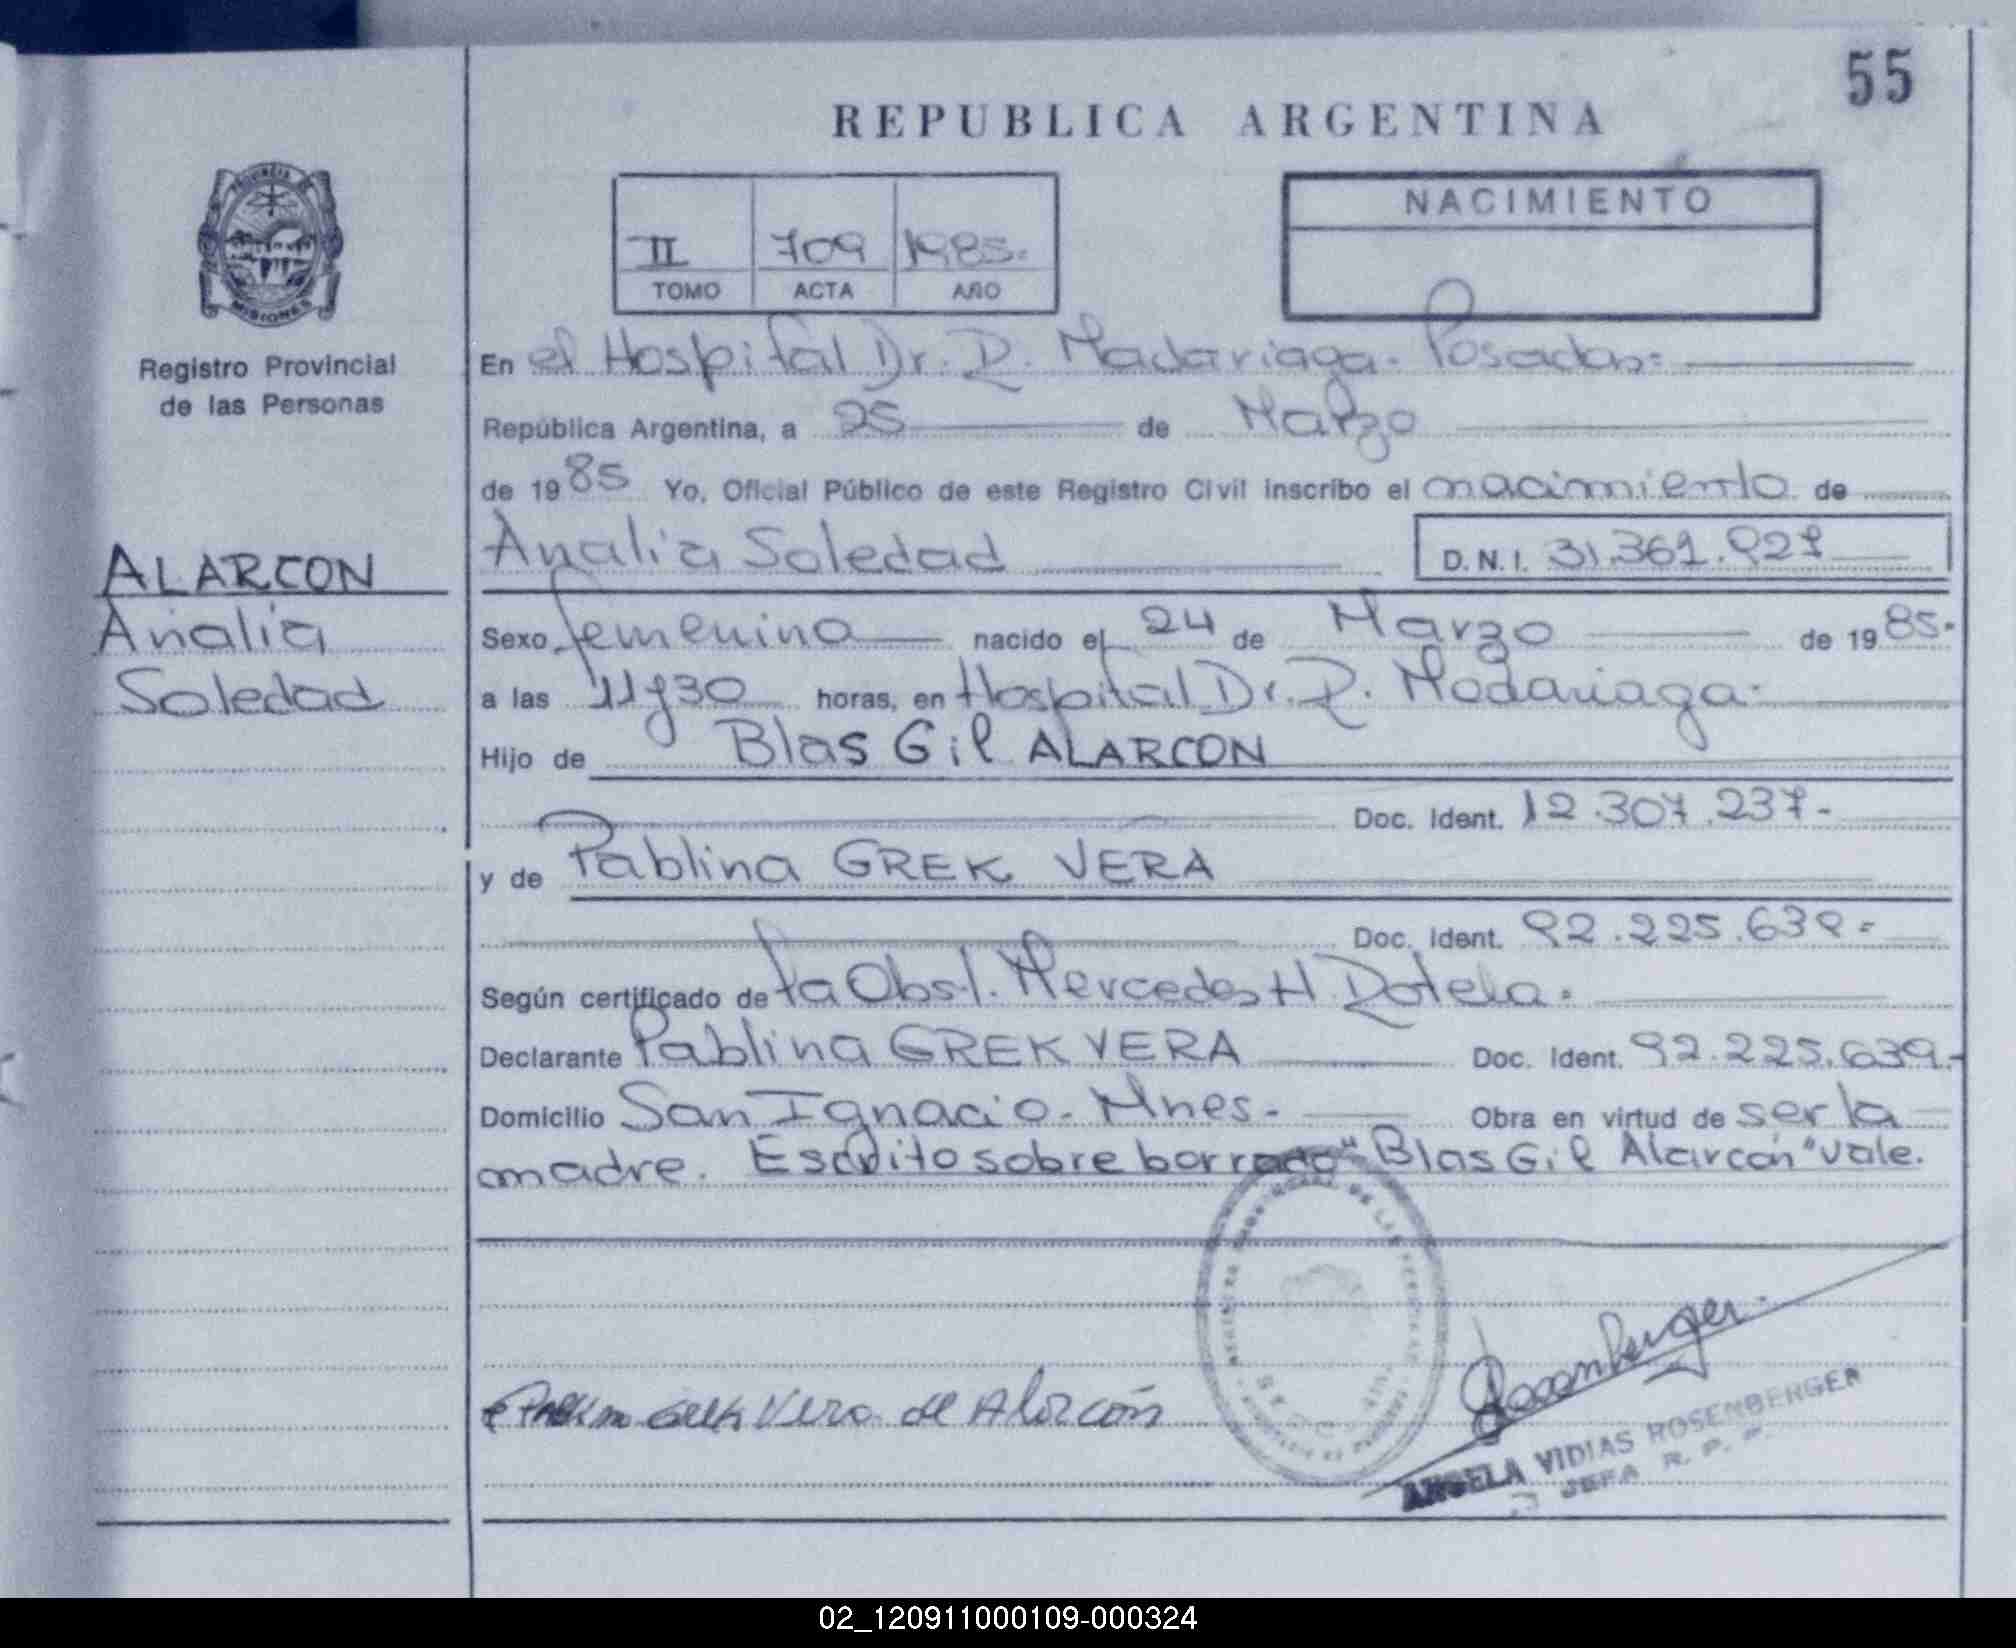 55
REPUBLICA ARGENTINA
PROVINCIA DE
MISIONES
Registro Provincial
de las Personas
II 709 1985.
TOMO ACTA AÑO
NACIMIENTO
En el Hospital Dr. R. Madariaga - Posadas =
República Argentina, a 25 de Marzo
de 1985 Yo, Oficial Público de este Registro Civil inscribo el nacimiento de
Analia Soledad D.N.I. 31.361.927
ALARCON
Analia
Soledad
Sexo femenino nacido el 24 de Marzo de 1985.
a las 11y30 horas, en Hospital Dr. R. Madariaga.
Hijo de Blas Gil ALARCON
Doc. Ident. 12.307.237-
y de Pablina GREK VERA
Doc. Ident. 92.225.639-
Según certificado de la Obst. Mercedes H.
Declarante Pablina GREK VERA Doc. Ident. 92.225.639.-
Domicilio San Ignacio - Mnes - Obra en virtud de ser la
madre. Escrito sobre borrado "Blas Gil Alarcón" vale.
Grek Vera de Alarcón
Rosenberger
ANGELA VIDIAS ROSENBERGER
JEFA R. P. P.
02_120911000109-000324